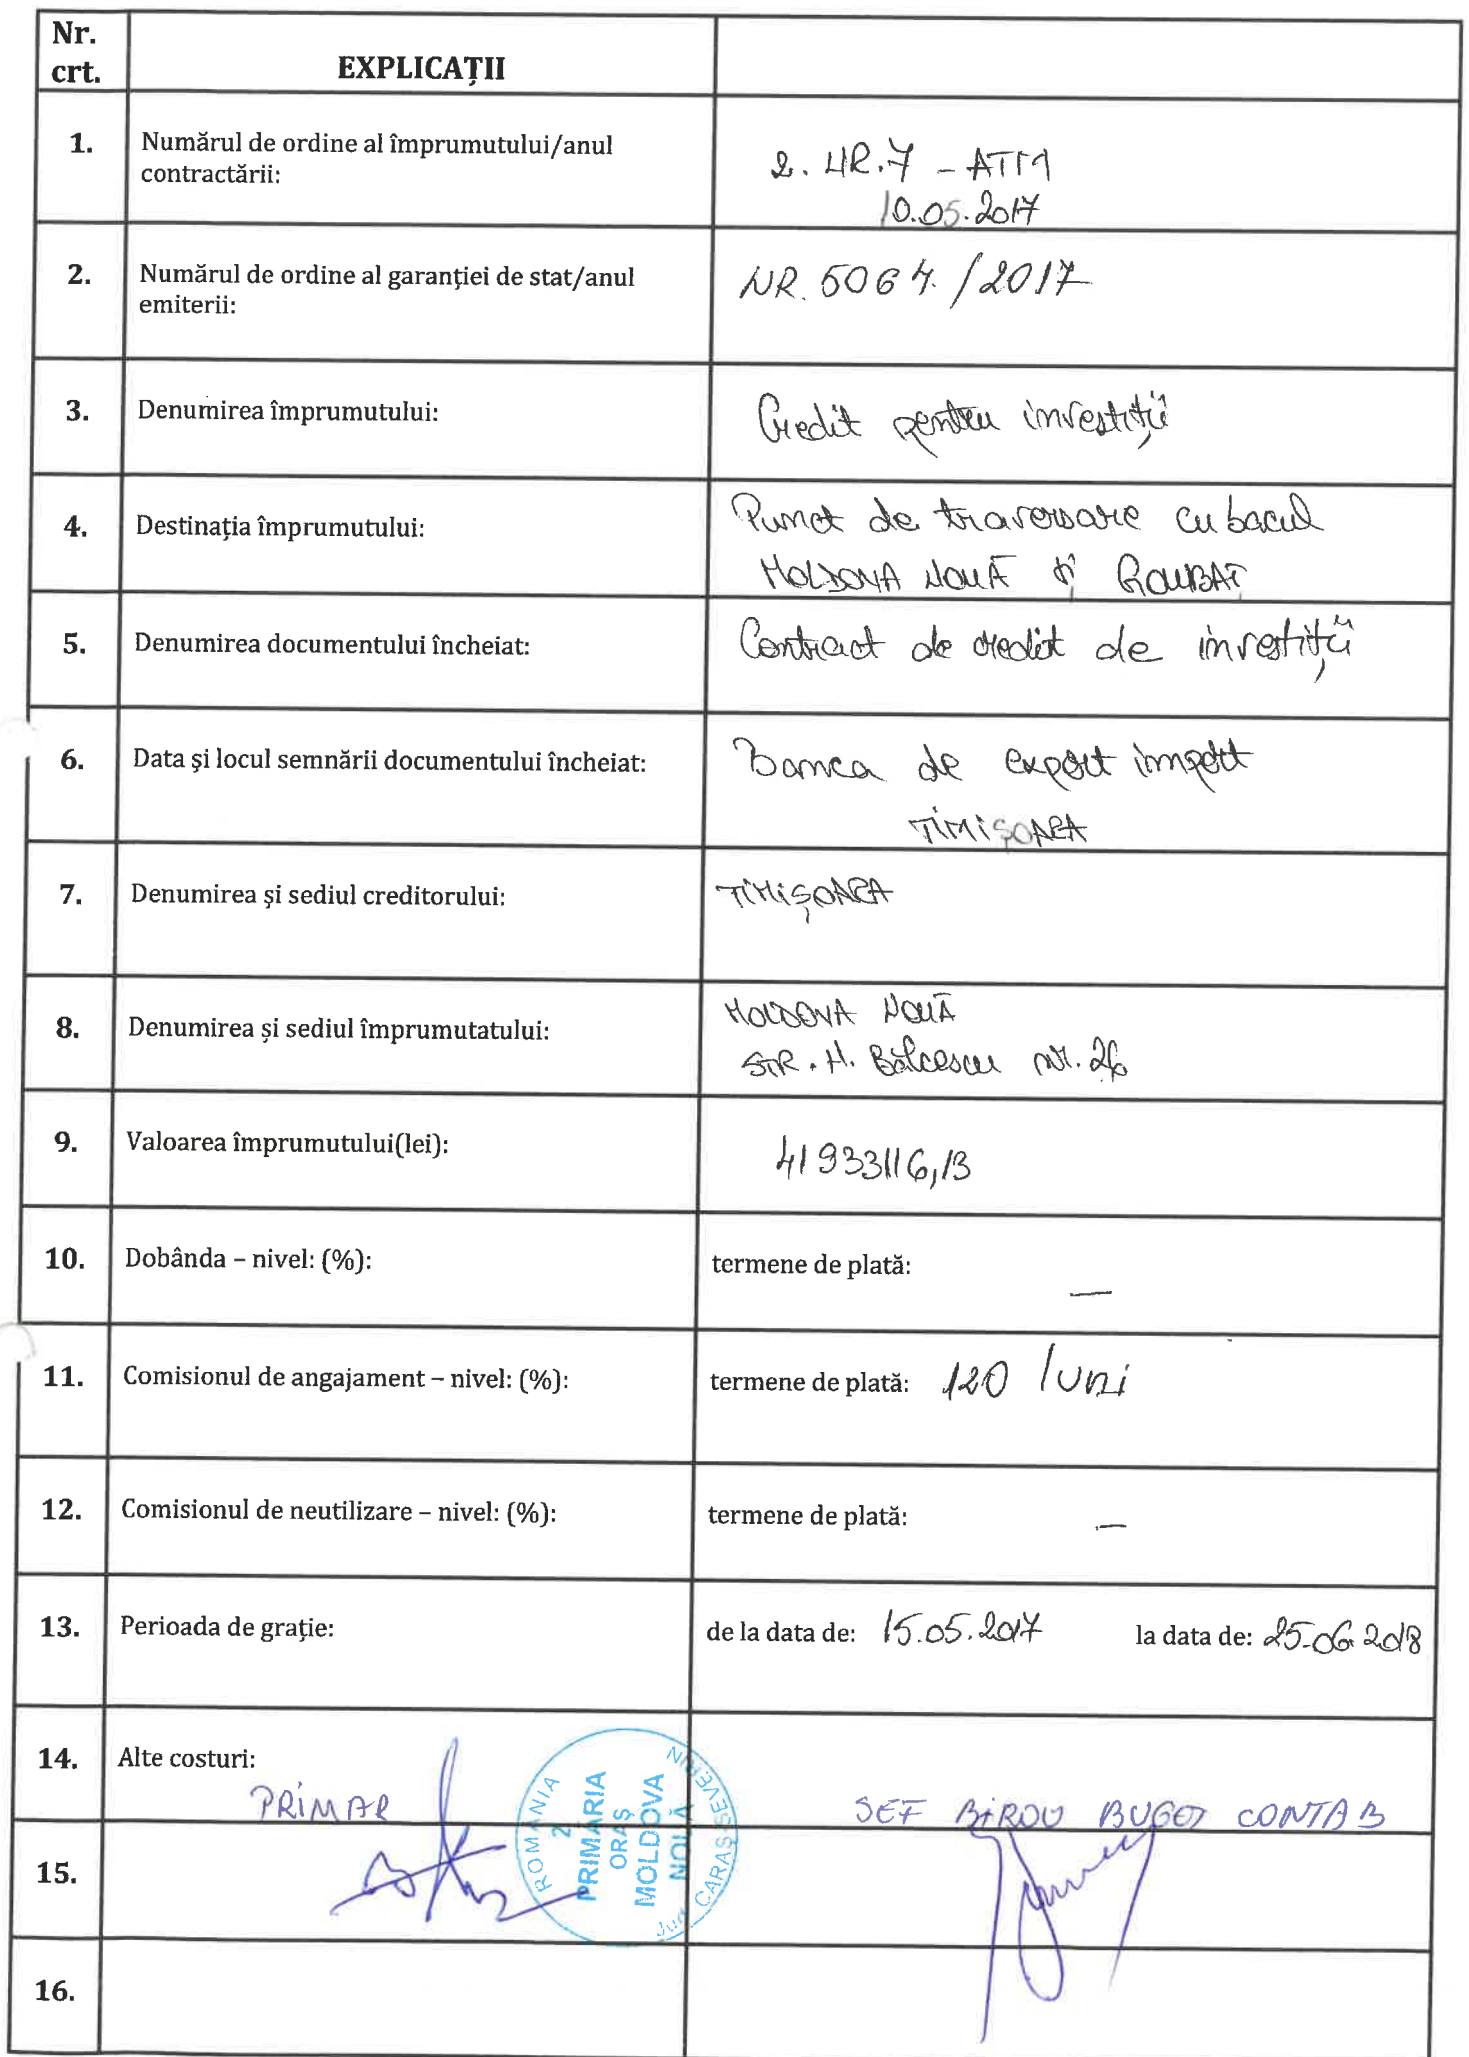 Nr.
crt.
EXPLICAȚII
1.
Numărul de ordine al împrumutului/anul
contractării:
2. NR.7 - ATM
10.05.2017
2.
Numărul de ordine al garanției de stat/anul
emiterii:
NR. 5064/2017
3.
Denumirea împrumutului:
Credit pentru investiții
4.
Destinația împrumutului:
Punct de traversare cu bacul
MOLDOVA NOUĂ și
5.
Denumirea documentului încheiat:
Contract de credit de investiții
6.
Data și locul semnării documentului încheiat:
Banca de export import
TIMIȘOARA
7.
Denumirea și sediul creditorului:
TIMIȘOARA
8.
Denumirea și sediul împrumutatului:
MOLDOVA NOUĂ
STR. N. Bălcescu nr. 26
9.
Valoarea împrumutului(lei):
41933116,13
10.
Dobânda – nivel: (%):
termene de plată: —
11.
Comisionul de angajament – nivel: (%):
termene de plată: 120 luni
12.
Comisionul de neutilizare – nivel: (%):
termene de plată: —
13.
Perioada de grație:
de la data de: 15.05.2017 la data de: 25.06.2018
14.
Alte costuri:
PRIMAR
ROMANIA
2
PRIMĂRIA
ORAȘ
MOLDOVA
NOUĂ
Jud. CARAȘ-SEVERIN
SEF BIROU BUGET CONTAB
15.
16.